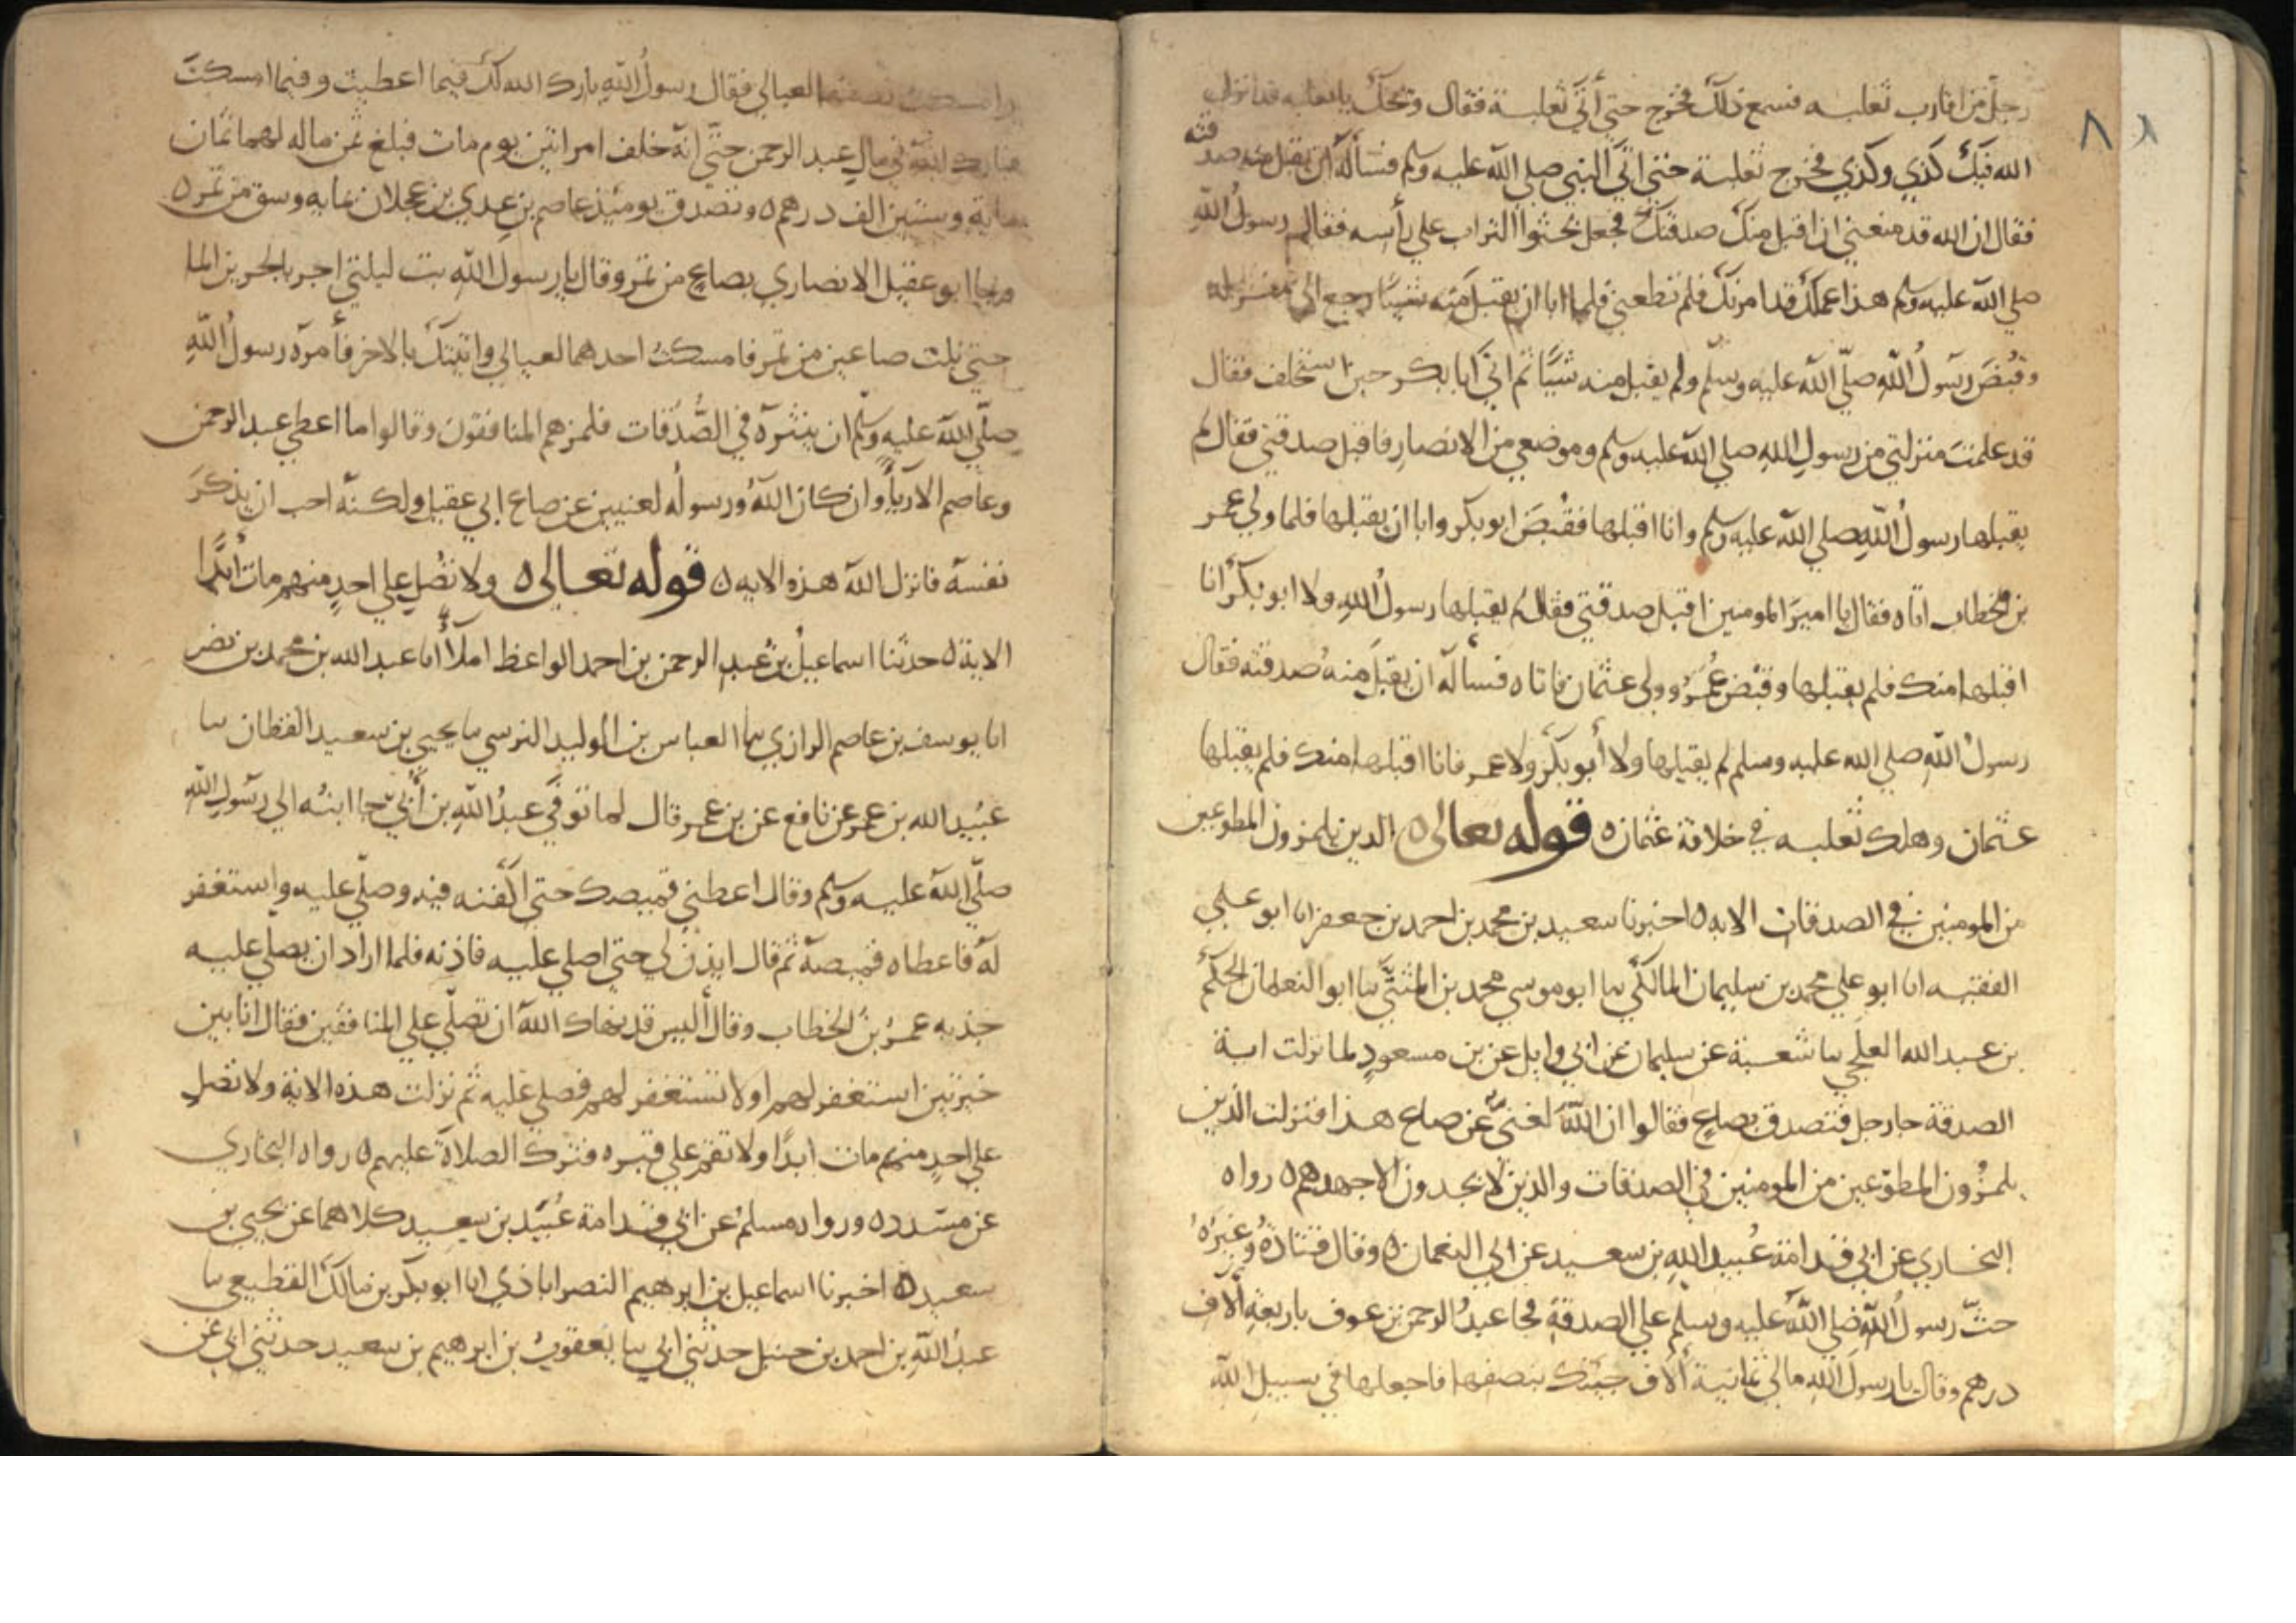 ٨١
رجل من اقارب ثعلبه فسمع ذلك فخرج حتي أتي ثعلبة فقال ويحك يا ثعلبه قد انزل
الله فيك كذي وكذي فخرج ثعلبة حتي اتي النبي صلي الله عليه وسلم فسأله ان يقبل منه صدقته
فقال ان الله قد منعني ان اقبل منك صدقتك فجعل يحثوا التراب علي رأسه فقال له رسول الله
صلي الله عليه وسلم هذا عملك قد امرتك فلم تطعني فلما ابا ان يقبل منه شيئا رجع الي منزله
وقبض رسول الله صلي الله عليه وسلم ولم يقبل منه شيئا ثم اتي ابا بكر حين استخلف فقال
قد علمت منزلتي من رسول الله صلي الله عليه وسلم وموضعي من الانصار فاقبل صدقتي فقال لم
يقبلها رسول الله صلي الله عليه وسلم وانا اقبلها فقبض ابو بكر وابا ان يقبلها فلما ولي عمر
بن الخطاب اتاه فقال يا امير المومنين اقبل صدقتي فقال لم يقبلها رسول الله ولا ابو بكر انا
اقبلها منك فلم يقبلها وقبض عمر وولي عثمان فاتاه فسأله ان يقبل منه صدقته فقال
رسول الله صلي الله عليه وسلم لم يقبلها ولا أبو بكر ولا عمر فانا اقبلها منك فلم يقبلها
عثمان وهلك ثعلبه في خلافة عثمان ٥ قوله تعالى ٥ الذين يلمزون المطوعين
من المومنين في الصدقات الايه ٥ اخبرنا سعيد بن محمد بن احمد بن جعفر انا ابو علي
الفقيه انا ابو علي محمد بن سليمان المالكي نا ابو موسي محمد بن المثني نا ابو النعمان الحكم
بن عبد الله العلجي نا شعبة عن سليمان عن ابي وايل عن بن مسعود لما نزلت اية
الصدقة جا رجل فتصدق بصاع فقالوا ان الله لغني عن صاع هذا فنزلت الذين
يلمزون المطوعين من المومنين في الصدقات والذين لا يجدون الا جهدهم ٥ رواه
البخاري عن ابي قدامة عبيد الله بن سعيد عن ابي النعمان ٥ وقال قتادة وغيره
حث رسول الله صلي الله عليه وسلم علي الصدقة فجا عبد الرحمن بن عوف باربعة ألاف
درهم وقال يا رسول الله مالي ثمانية ألاف جيتك بنصفها فاجعلها في سبيل الله
وامسكت نصفها لعيالي فقال رسول الله بارك الله لك فيما اعطيت وفيما امسكت
فبارك الله في مال عبد الرحمن حتي انه خلف امراتين يوم مات فبلغ ثمن ماله لهما ثمان
ماية وستين الف درهم ٥ وتصدق يوميذ عاصم بن عدي بن عجلان بمايه وسق من تمر ٥
وجا ابو عقيل الانصاري بصاع من تمر وقال يا رسول الله بت ليلتي اجر بالجرير الما
حتي نلت صاعين من تمر فامسكت احدهما لعيالي واتيتك بالاخر فأمره رسول الله
صلي الله عليه وسلم ان ينثره في الصدقات فلمزهم المنافقون وقالوا ما اعطي عبد الرحمن
وعاصم الا رياء وان كان الله ورسوله لغنيين عن صاع ابي عقيل ولكنه احب ان يذكر
نفسه فانزل الله هذه الايه ٥ قوله تعالى ٥ ولا تصل علي احد منهم مات أبدا
الاية ٥ حدثنا اسماعيل بن عبد الرحمن بن احمد الواعظ املأ أنا عبد الله بن محمد بن نصر
انا يوسف بن عاصم الرازي نا العباس بن الوليد النرسي نا يحيي بن سعيد القطان نا
عبيد الله بن عمر عن نافع عن بن عمر قال لما توفي عبد الله بن أبي جا ابنه الي رسول الله
صلي الله عليه وسلم وقال اعطني قميصك حتي اكفنه فيه وصلي عليه واستغفر
له فاعطاه قميصه ثم قال ايذن لي حتي اصلي عليه فاذنه فلما اراد ان يصلي عليه
جذبه عمر بن الخطاب وقال أليس قد نهاك الله ان تصلي علي المنافقين فقال انا بين
خيرتين استغفر لهم او لا تستغفر لهم فصلي عليه ثم نزلت هذه الاية ولا تصل
علي احد منهم مات ابدا ولا تقم علي قبره فترك الصلاة عليهم ٥ رواه البخاري
عن مسدد ٥ ورواه مسلم عن ابي قدامة عبيد بن سعيد كلاهما عن يحيي بن
سعيد ٥ اخبرنا اسماعيل بن ابرهيم النصراباذي انا ابو بكر بن مالك القطيعي نا
عبد الله بن احمد بن حنبل حدثني ابي نا يعقوب بن ابرهيم بن سعيد حدثني ابي عن